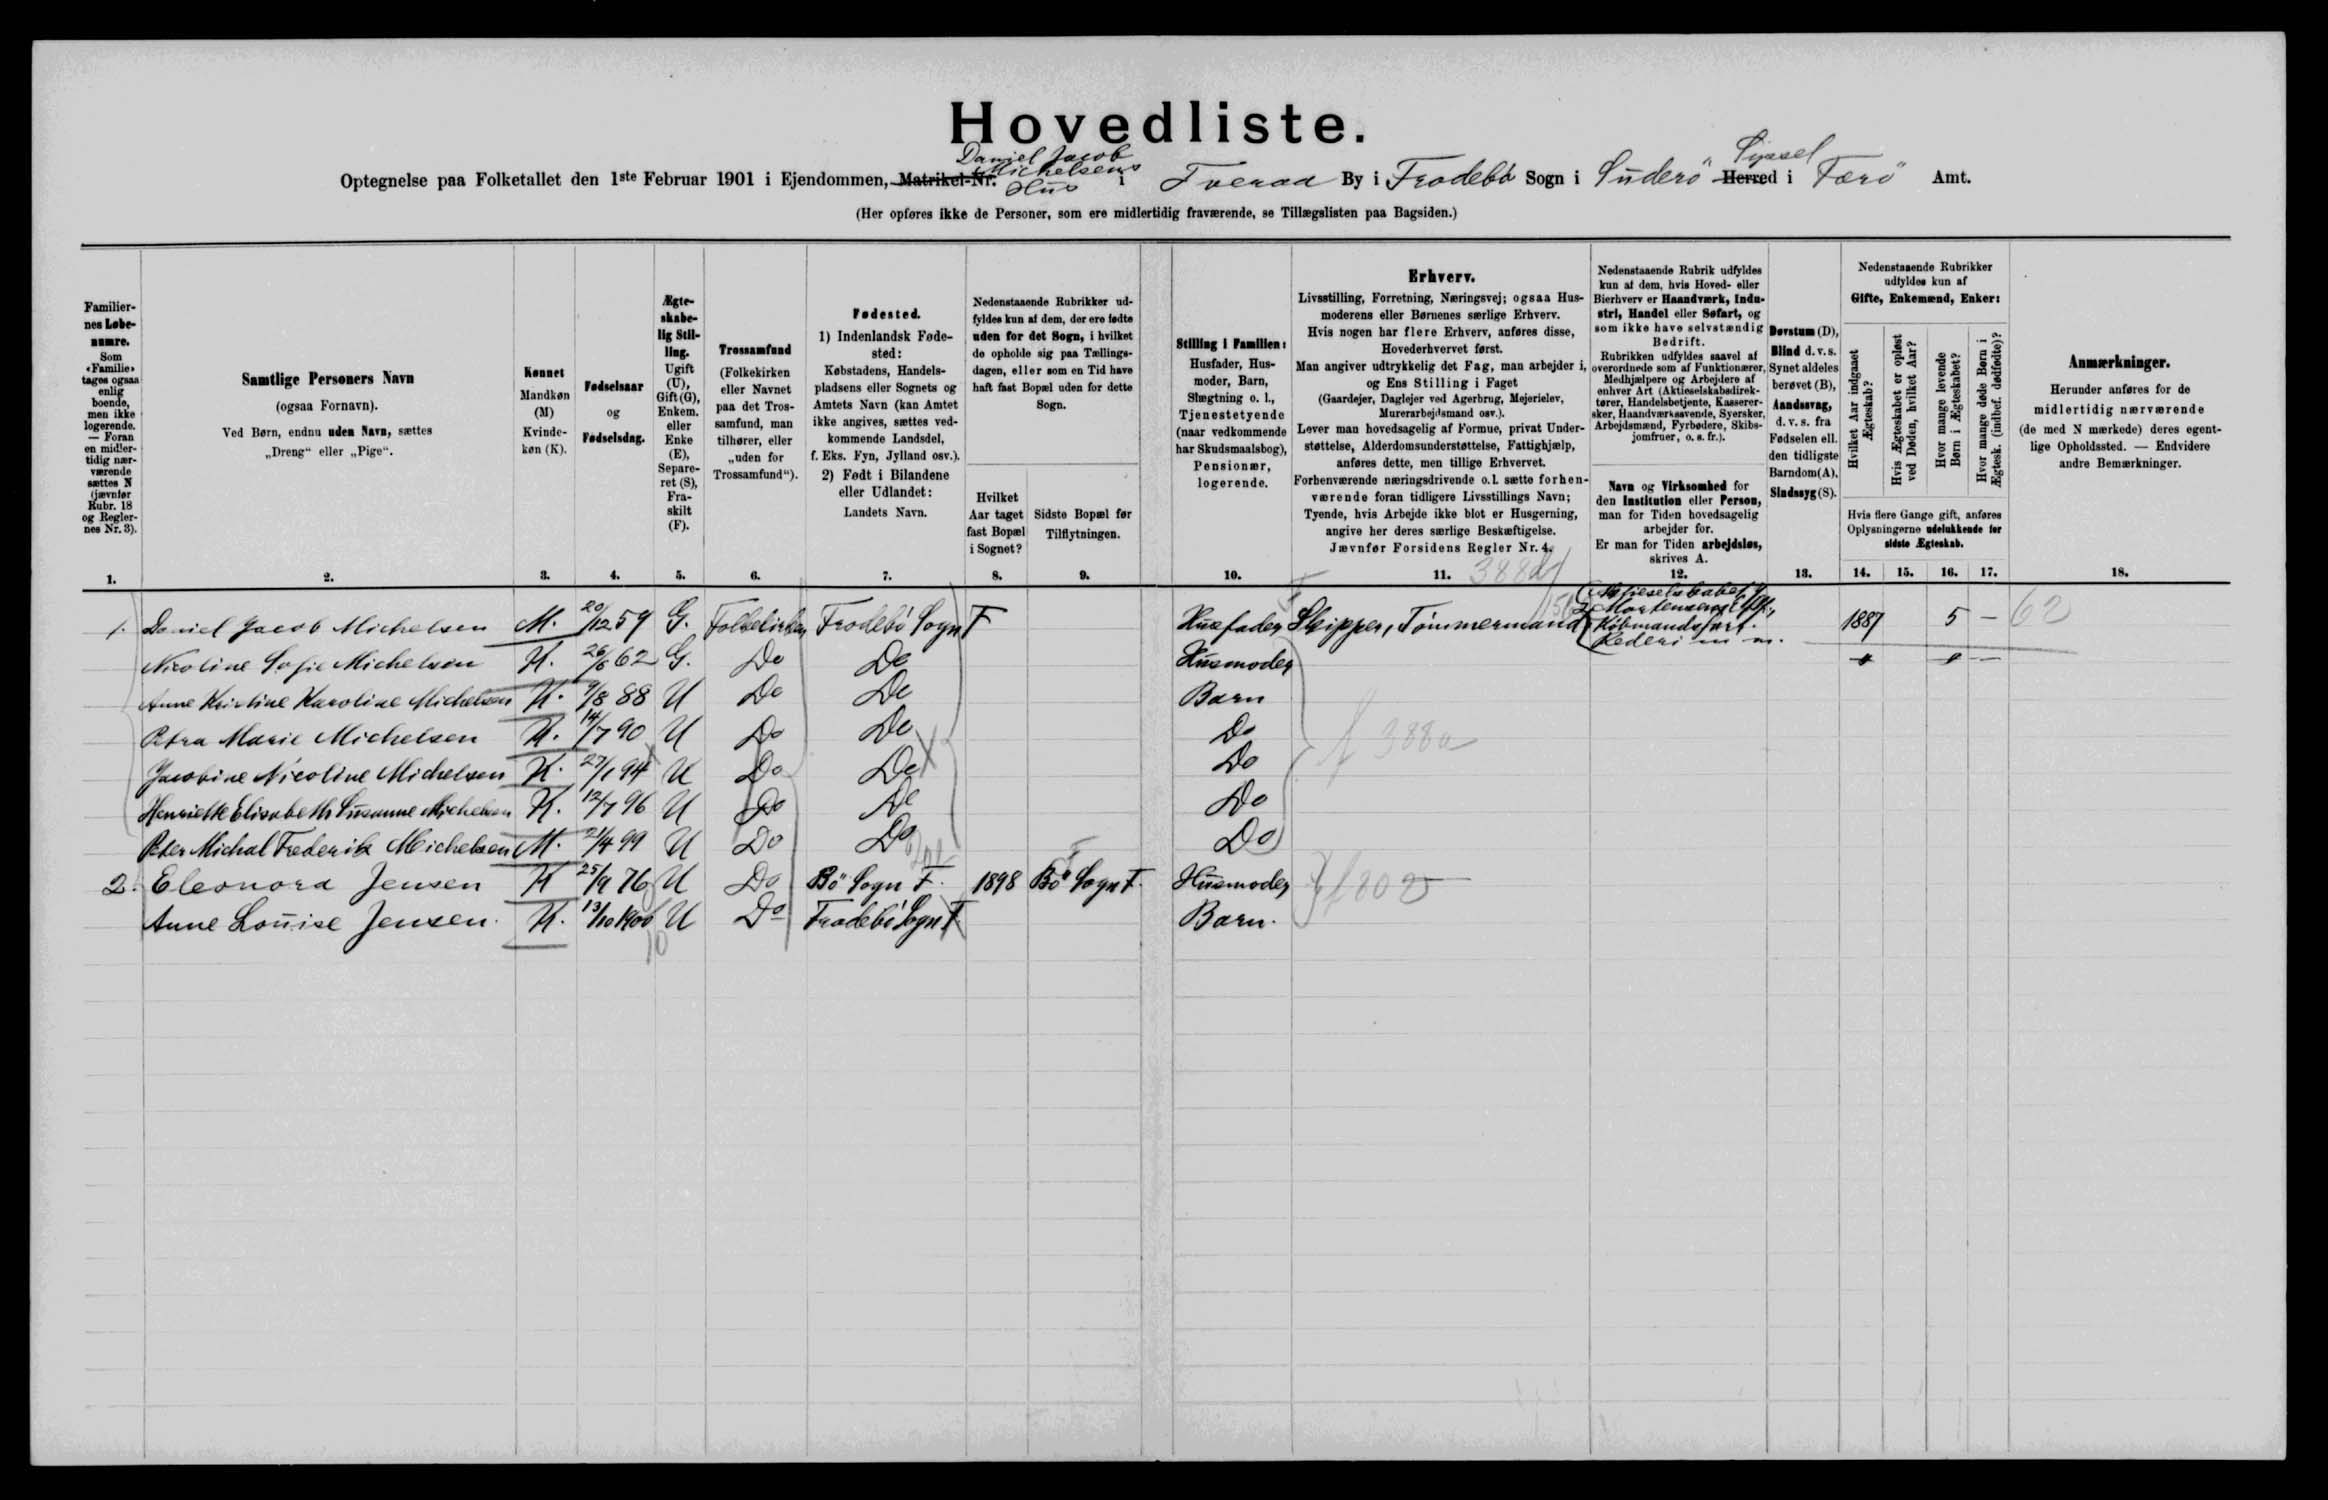 Hovedliste.
Optegnelse paa Folketallet den 1ste Februar 1901 i Ejendommen, Matrikel-Nr. Daniel Jacob Michelsens Hus i Tveraa By i Frodebö Sogn i Suderö Herred Syssel i Færö Amt.
(Her opføres ikke de Personer, som ere midlertidig fraværende, se Tillægslisten paa Bagsiden.)
Familiernes Løbenumre.
Som «Familie» tages ogsaa enlig boende, men ikke logerende. — Foran en midlertidig nærværende sættes N (jævnfør Rubr. 18 og Reglernes Nr. 3).
1.
Samtlige Personers Navn
(ogsaa Fornavn).
Ved Børn, endnu uden Navn, sættes
„Dreng“ eller „Pige“.
2.
Kønnet
Mandkøn (M)
Kvindekøn (K).
3.
Fødselsaar
og
Fødselsdag.
4.
Ægteskabelig Stilling.
Ugift (U), Gift (G), Enkem. eller Enke (E), Separeret (S), Fraskilt (F).
5.
Trossamfund
(Folkekirken eller Navnet paa det Trossamfund, man tilhører, eller „uden for Trossamfund“).
6.
Fødested.
1) Indenlandsk Fødested:
Købstadens, Handelspladsens eller Sognets og Amtets Navn (kan Amtet ikke angives, sættes vedkommende Landsdel, f. Eks. Fyn, Jylland osv.).
2) Født i Bilandene eller Udlandet:
Landets Navn.
7.
Nedenstaaende Rubrikker udfyldes kun af dem, der ere fødte uden for det Sogn, i hvilket de opholde sig paa Tællingsdagen, eller som en Tid have haft fast Bopæl uden for dette Sogn.
Hvilket Aar taget fast Bopæl i Sognet?
8.
Sidste Bopæl før Tilflytningen.
9.
Stilling i Familien:
Husfader, Husmoder, Barn, Slægtning o. l., Tjenestetyende (naar vedkommende har Skudsmaalsbog), Pensionær, logerende.
10.
Erhverv.
Livsstilling, Forretning, Næringsvej; ogsaa Husmoderens eller Børnenes særlige Erhverv.
Hvis nogen har flere Erhverv, anføres disse, Hovederhvervet først.
Man angiver udtrykkelig det Fag, man arbejder i, og Ens Stilling i Faget
(Gaardejer, Daglejer ved Agerbrug, Mejerielev, Murerarbejdsmand osv.).
Lever man hovedsagelig af Formue, privat Understøttelse, Alderdomsunderstøttelse, Fattighjælp, anføres dette, men tillige Erhvervet.
Forhenværende næringsdrivende o. l. sætte forhenværende foran tidligere Livsstillings Navn;
Tyende, hvis Arbejde ikke blot er Husgerning, angive her deres særlige Beskæftigelse.
Jævnfør Forsidens Regler Nr. 4.
11.
Nedenstaaende Rubrik udfyldes kun af dem, hvis Hoved- eller Bierhverv er Haandværk, Industri, Handel eller Søfart, og som ikke have selvstændig Bedrift.
Rubrikken udfyldes saavel af overordnede som af Funktionærer, Medhjælpere og Arbejdere af enhver Art (Aktieselskabsdirektører, Handelsbetjente, Kasserersker, Haandværkssvende, Syersker, Arbejdsmænd, Fyrbødere, Skibsjomfruer, o. s. fr.).
Navn og Virksomhed for den Institution eller Person, man for Tiden hovedsagelig arbejder for.
Er man for Tiden arbejdsløs, skrives A.
12.
Døvstum (D), Blind d. v. s. Synet aldeles berøvet (B), Aandssvag, d. v. s. fra Fødselen ell. den tidligste Barndom (A), Sindssyg (S).
13.
Nedenstaaende Rubrikker udfyldes kun af
Gifte, Enkemænd, Enker:
Hvilket Aar indgaaet Ægteskab?
Hvis Ægteskabet er opløst ved Døden, hvilket Aar?
Hvor mange levende Børn i Ægteskabet?
Hvor mange døde Børn i Ægtesk. (indbef. dødfødte)?
Hvis flere Gange gift, anføres Oplysningerne udelukkende for sidste Ægteskab.
14. 15. 16. 17.
Anmærkninger.
Herunder anføres for de midlertidig nærværende (de med N mærkede) deres egentlige Opholdssted. — Endvidere andre Bemærkninger.
18.
1. Daniel Jacob Michelsen M. 20/12 59 G. Folkekirken Frodebö Sogn F Husfader Skipper, Tømmermand Aktieselskabet Mortensens Eftf., Købmandsfart. Rederi m m. 1887 5 – 62
Nicoline Sofie Michelsen K. 26/6 62 G. Do Do Husmoder
Anne Kristine Karoline Michelsen K. 9/8 88 U Do Do Barn
Petra Marie Michelsen K. 14/7 90 U Do Do Do
Jacobine Nicoline Michelsen K. 27/1 94 U Do Do Do
Henriette Elisabeth Susanne Michelsen K. 12/7 96 U Do Do Do
Peter Michal Frederik Michelsen M. 21/4 99 U Do Do Do
2. Eleonora Jensen K 25/9 76 U Do Bö Sogn F. 1898 Bö Sogn F. Husmoder
Anne Louise Jensen. K. 13/10 1900 U Do Frodebö Sogn F. Barn.